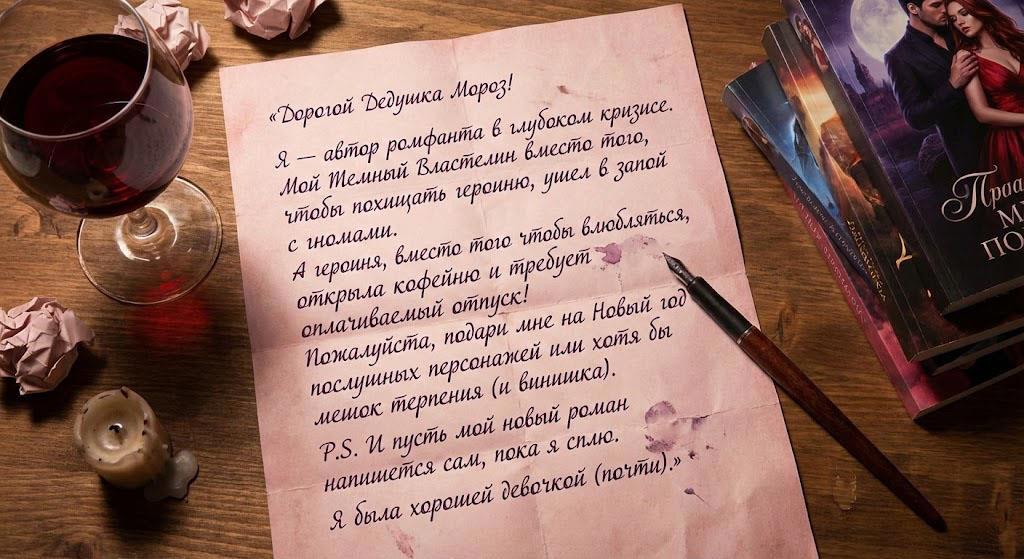 «Дорогой Дедушка Мороз!
Я — автор ромфанта в глубоком кризисе.
Мой Темный Властелин вместо того,
чтобы похищать героиню, ушел в запой
с гномами.
А героиня, вместо того чтобы влюбляться,
открыла кофейню и требует
оплачиваемый отпуск!
Пожалуйста, подари мне на Новый год
послушных персонажей или хотя бы
мешок терпения (и винишка).
P.S. И пусть мой новый роман
напишется сам, пока я сплю.
Я была хорошей девочкой (почти).»